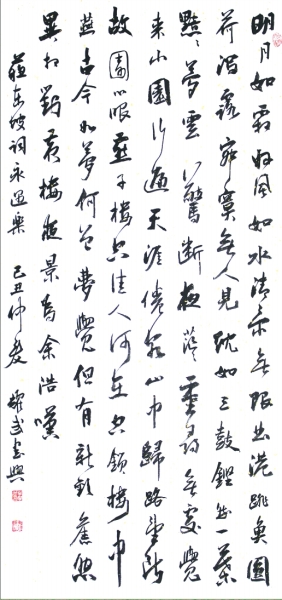 明月如霜好風如水清景無限曲港跳魚圓
荷瀉露寂寞無人見紞如三鼓鏗然一葉
黯〻夢雲驚斷夜茫〻重尋無處覺
來小園行遍天涯倦客山中歸路望斷
故園心眼燕子樓空佳人何在空鎖樓中
燕古今如夢何曾夢覺但有新歡舊怨
異時對黃樓夜景為余浩嘆
蘇東坡詞永遇樂 己丑仲夏